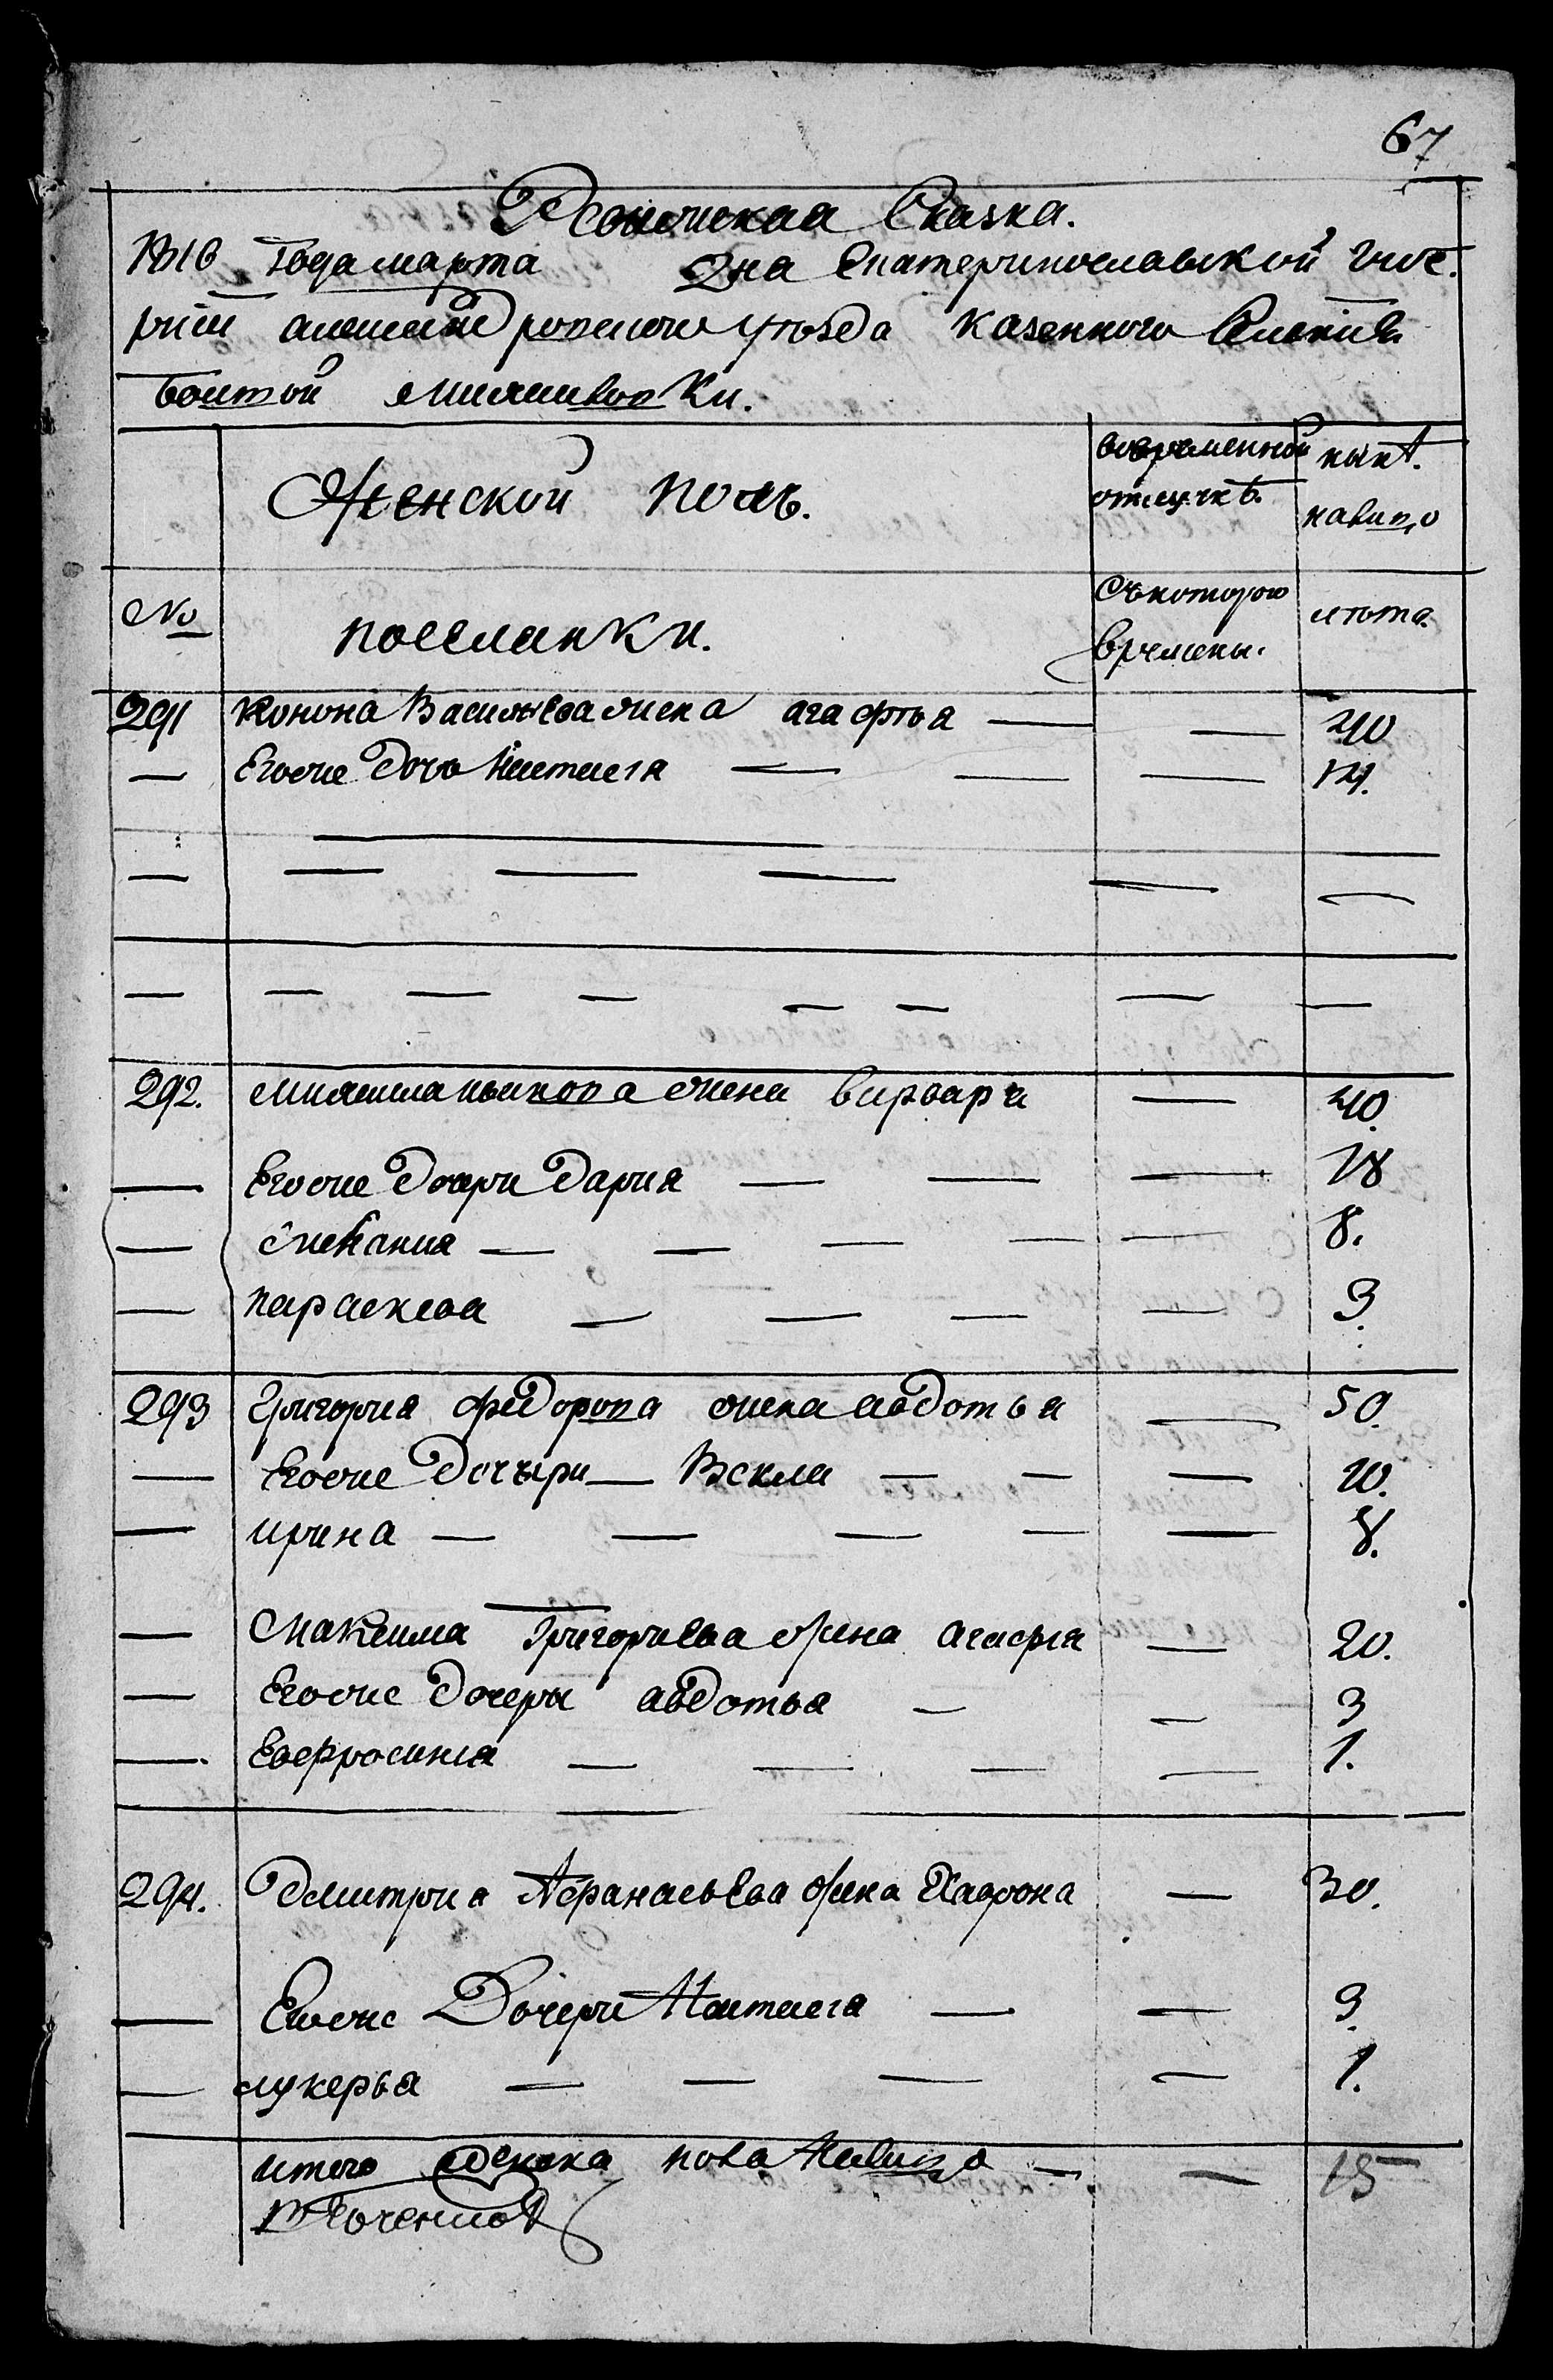 67
Ревижская Сказка.
1816 Года марта Дня Екатеринославской губе.
рнiи александровского уѣзда казенного Селенiя
волковки.
Женской полъ.
вовременной отлучкѣ.
нынѣ налицо
№
поселянки.
Съкоторого времены.
лѣта.
291 Конона Васильева жена агафья — — 40
— Егоже Дочь Настасiя — — — 14.
— — — — — —
— — — — — — — —
292. жена варвара — 40.
— Егоже Дочери Дария — — — 18
— Степанида — — — — — 8.
— параскева — — — — 3.
293 Григория федорова жена авдотья — 50.
— Егоже Дочыри — Векла — — — 10.
— ирина — — — — — 8.
— Максима Григориева жена агафiя — 20.
— Егоже Дочеры авдотья — — 3
— Евфросинiя — — — — 1.
294. Дмитрия Афанасьева жена Хаврона — 30.
— Егоже Дочери Настасiя — — 3.
— лукерья — — — — 1.
итого женска пола налицо — — 15